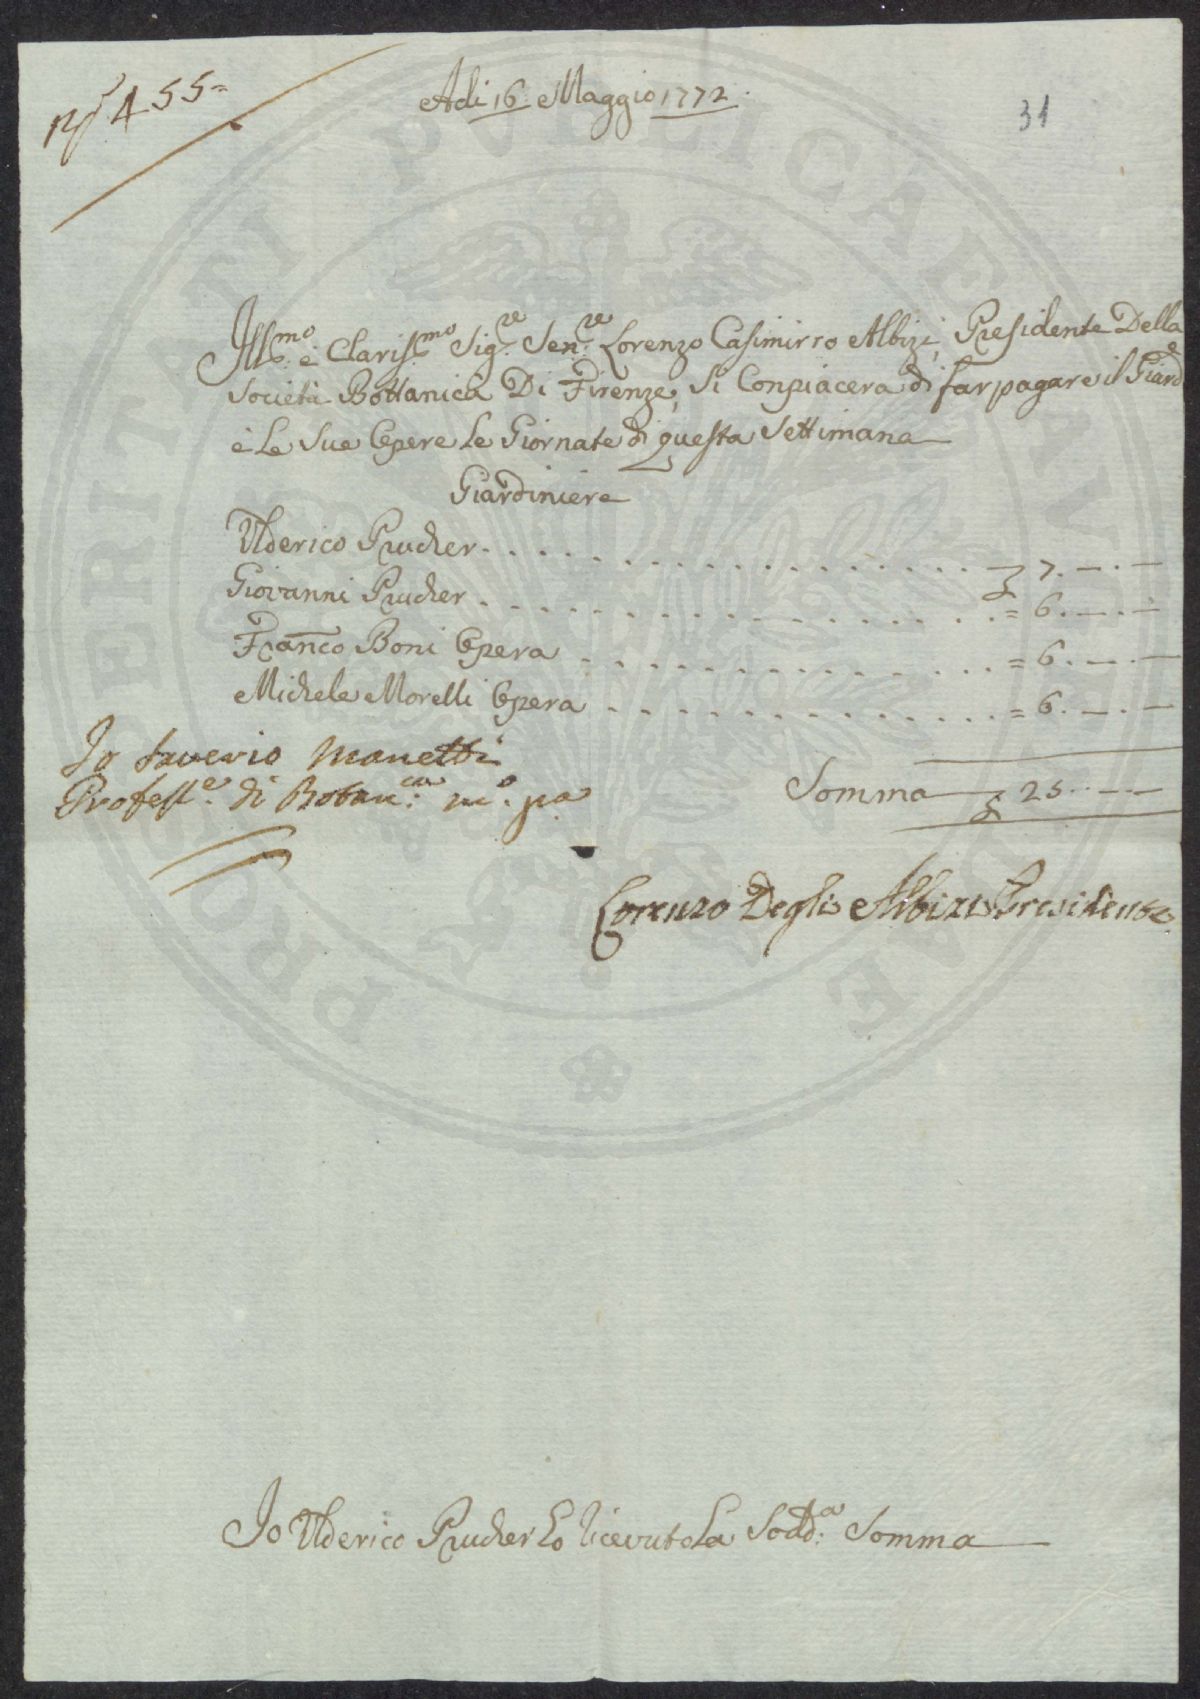 N° 455=
Adi 16: Maggio 1772:
31
Ill:mo è Clariss:mo Sig:re Sen:re Lorenzo Casimirro Albizi, Presidente Della
Società Bottanica Di Firenze, Si Conpiacera di far pagare il Giard:e
è Le Sue Opere Le Giornate di questa Settimana
Giardiniere
Ulderico Prucher . . . . . . . . . . . . . . . . . . . £ 7. — . —
Giovanni Prucher . . . . . . . . . . . . . . . . . . . = 6. — . —
Franco Boni Opera . . . . . . . . . . . . . . . = 6. — . —
Michele Morelli Opera . . . . . . . . . . . . . . . = 6. — . —
Io Saverio Manetti
Profess:e di Botan:ca m:o pa
Somma £ 25. — . —
Lorenzo Degli Albizi Presidente
Io Ulderico Prucher ho ricevuto La Sodd:a Somma
PROPERITATI PUBLICAE AUGENDAE